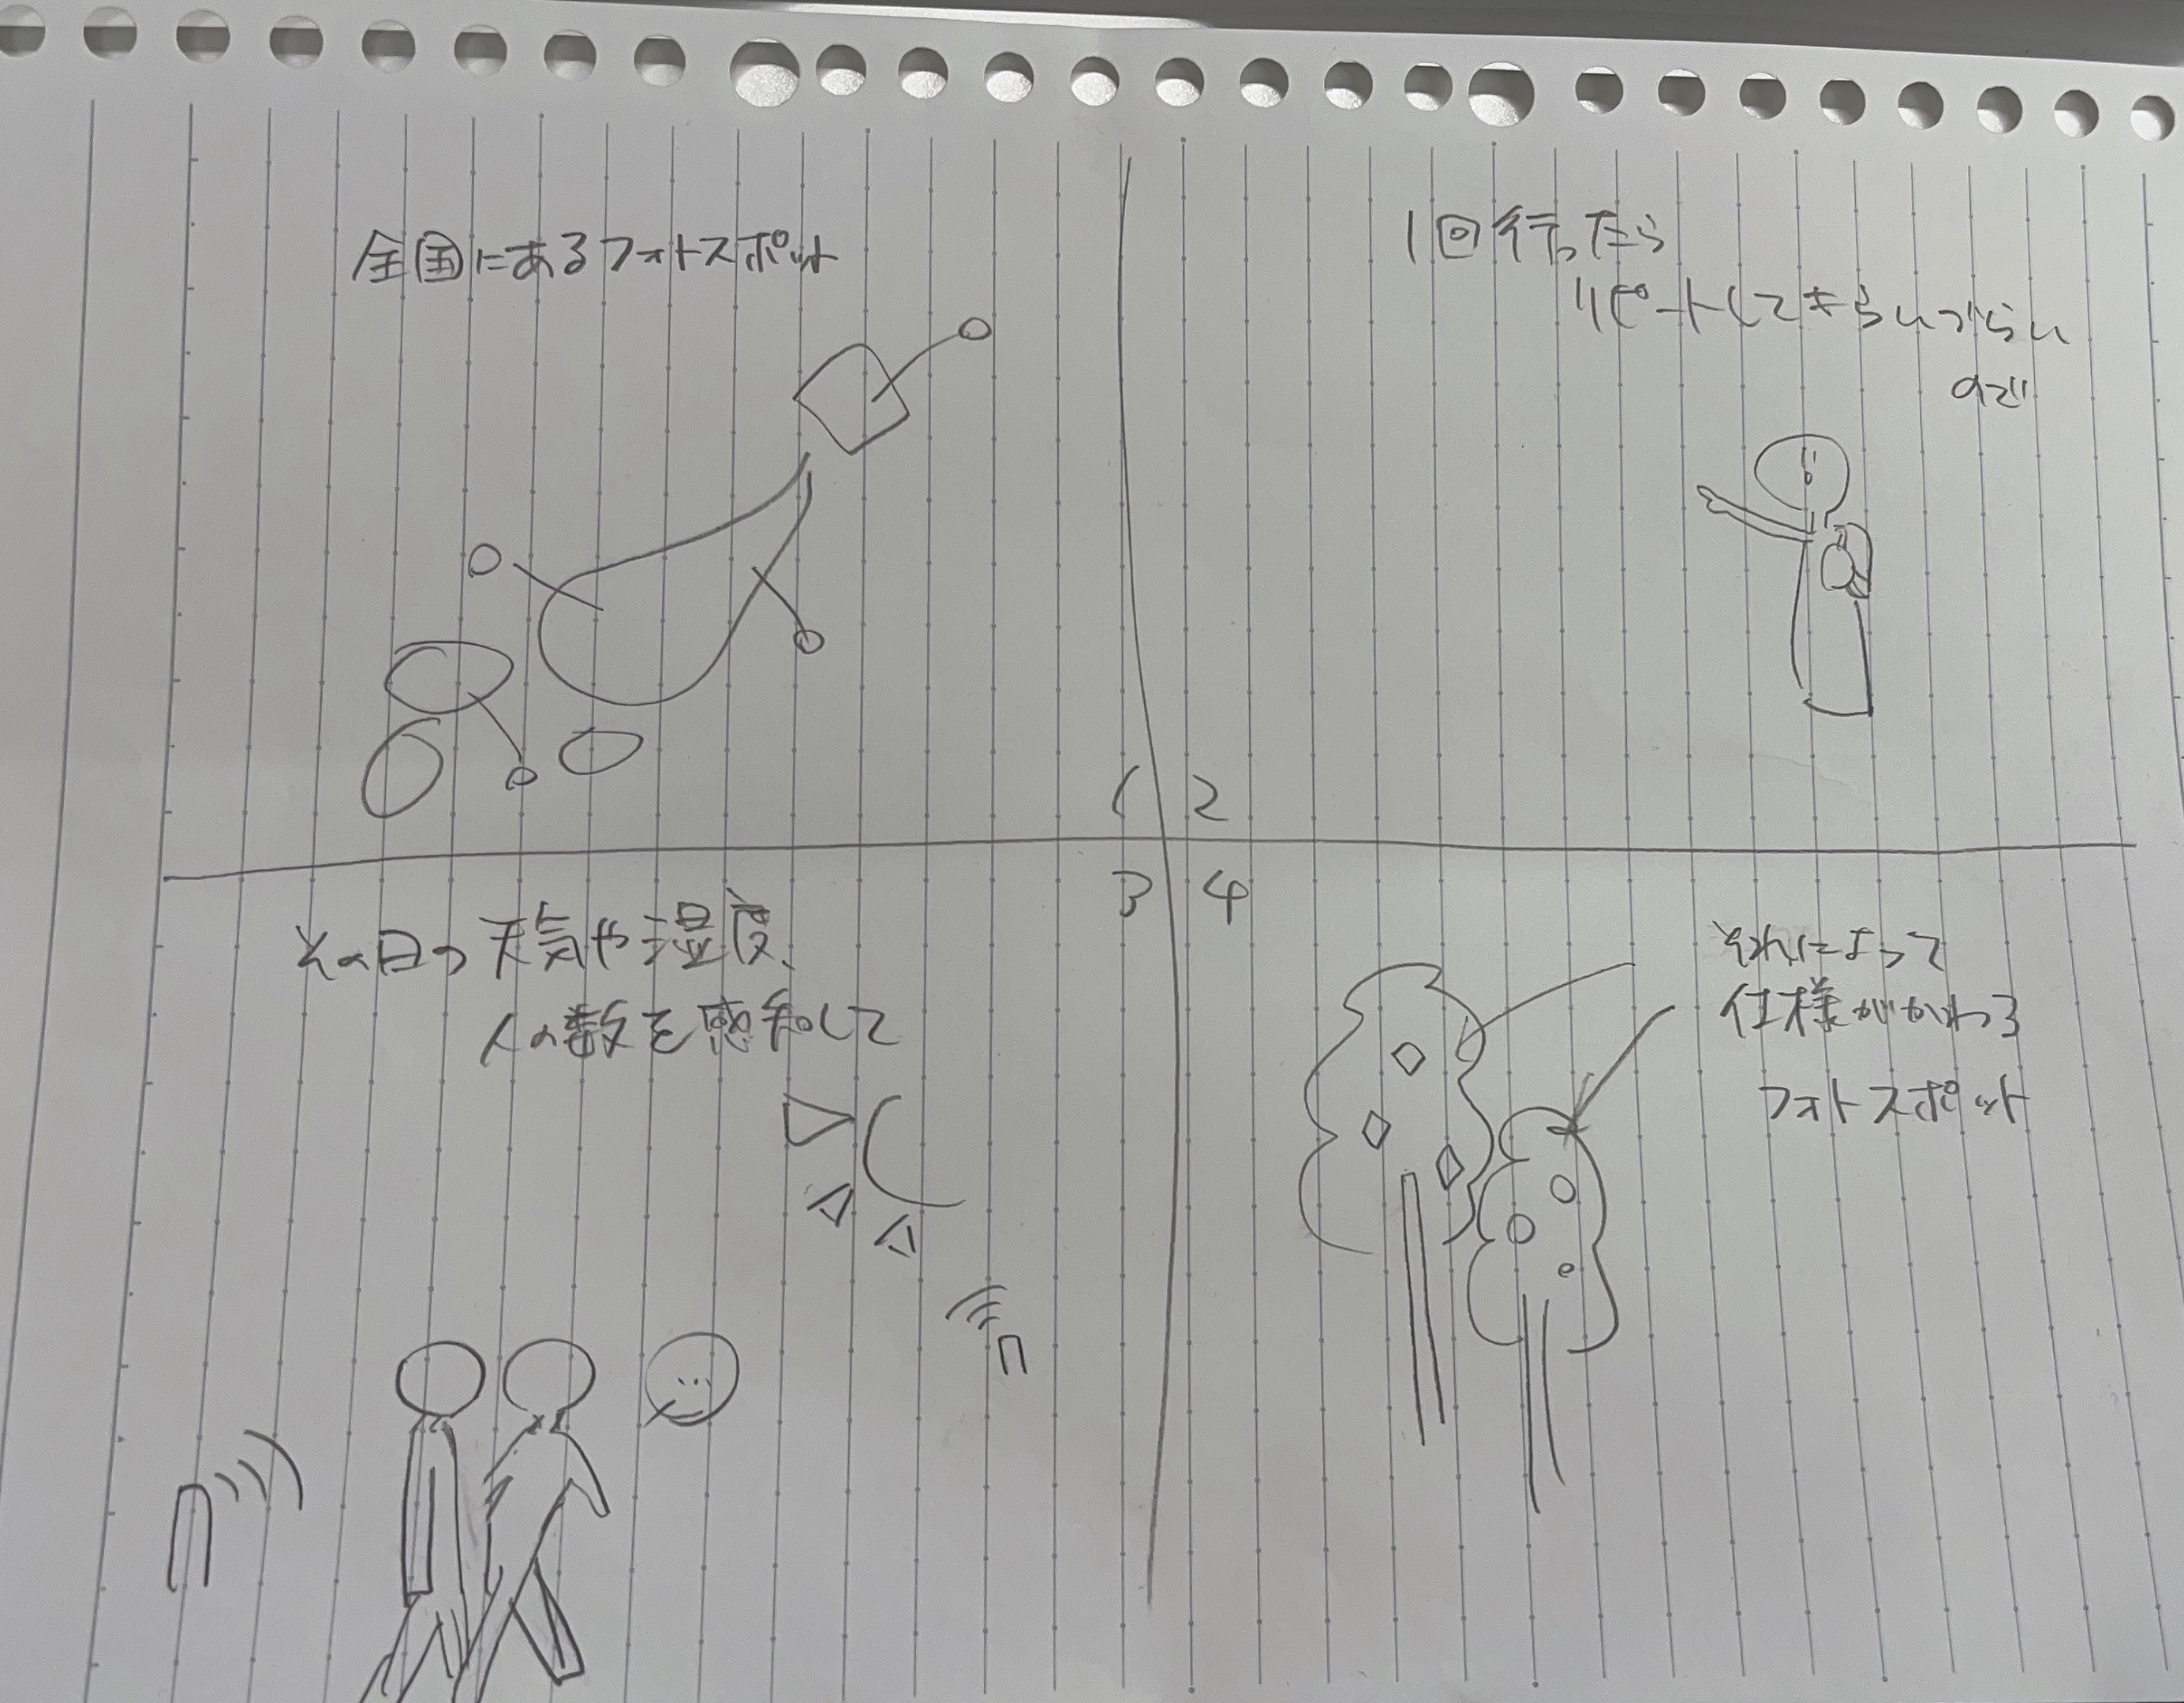 全国にあるフォトスポット
1回行ったら
リピートしてもらいづらい
ので
1
2
3
4
その日の天気や湿度、
人の数を感知して
それによって
仕様がかわる
フォトスポット